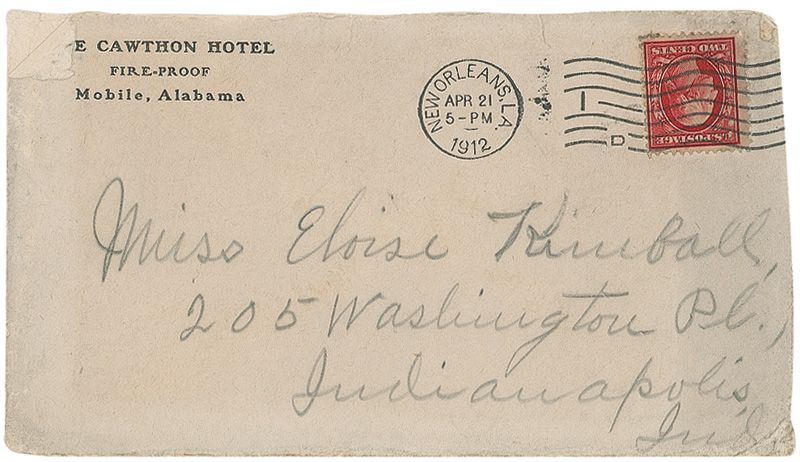 E CAWTHON HOTEL
FIRE-PROOF
Mobile, Alabama
NEW ORLEANS, LA.
APR 21
5-PM
1912
1
D
U.S. POSTAGE
TWO CENTS
Miss Eloise Kimball,
205 Washington Pl.,
Indianapolis,
Ind